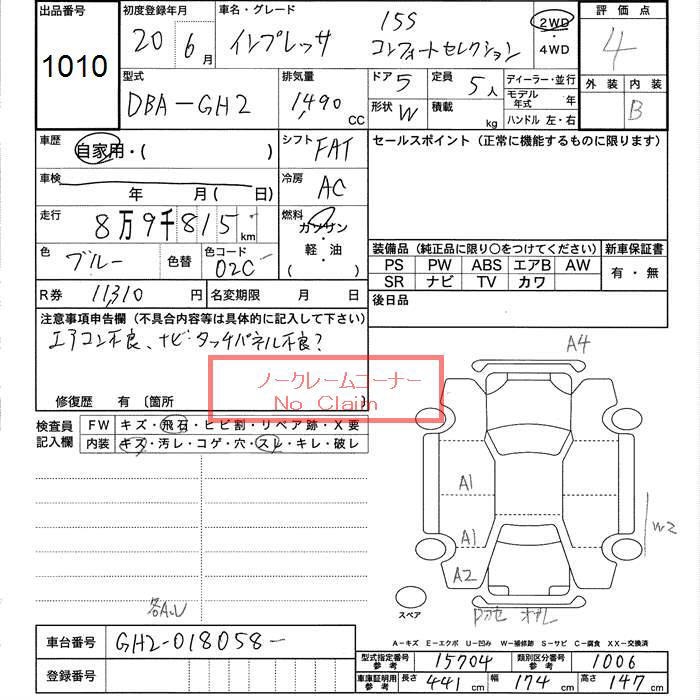 出品番号 初度登録年月 車名・グレード 評価点
1010 20年 6月 インプレッサ 15S コンフォートセレクション 2WD・4WD 4
型式 排気量 ドア 5 定員 5人 ディーラー・並行 外装 内装
DBA-GH2 1,490 CC 形状 W 積載 kg モデル年式 年 B
ハンドル 左・右
車歴 自家用・( ) シフト FAT セールスポイント (正常に機能するものに限ります)
車検 年 月( 日) 冷房 AC
走行 8万9千815km 燃料 ガソリン・軽油 ( )
色 ブルー 色替 色コード 02C 装備品 (純正品に限り○をつけてください) 新車保証書
PS PW ABS エアB AW 有・無
SR ナビ TV カワ
R券 11,310 円 名変期限 月 日 後日品
注意事項申告欄 (不具合内容等は具体的に記入して下さい)
エアコン不良、ナビ・タッチパネル不良?
ノークレームコーナー
No Claim
修復歴 有 〔箇所 〕
検査員記入欄 FW キズ・飛石・ヒビ割・リペア跡・X要
内装 キズ・汚レ・コゲ・穴・スレ・キレ・破レ
A4
A1
A1
A2
W2
各A.U
スペア
A-キズ E-エクボ U-凹み W-補修跡 S-サビ C-腐食 XX-交換済
車台番号 GH2-018058- 型式指定番号 参考 15704 類別区分番号 参考 1006
登録番号 車庫証明用 参考 長さ 441 cm 幅 174 cm 高さ 147 cm